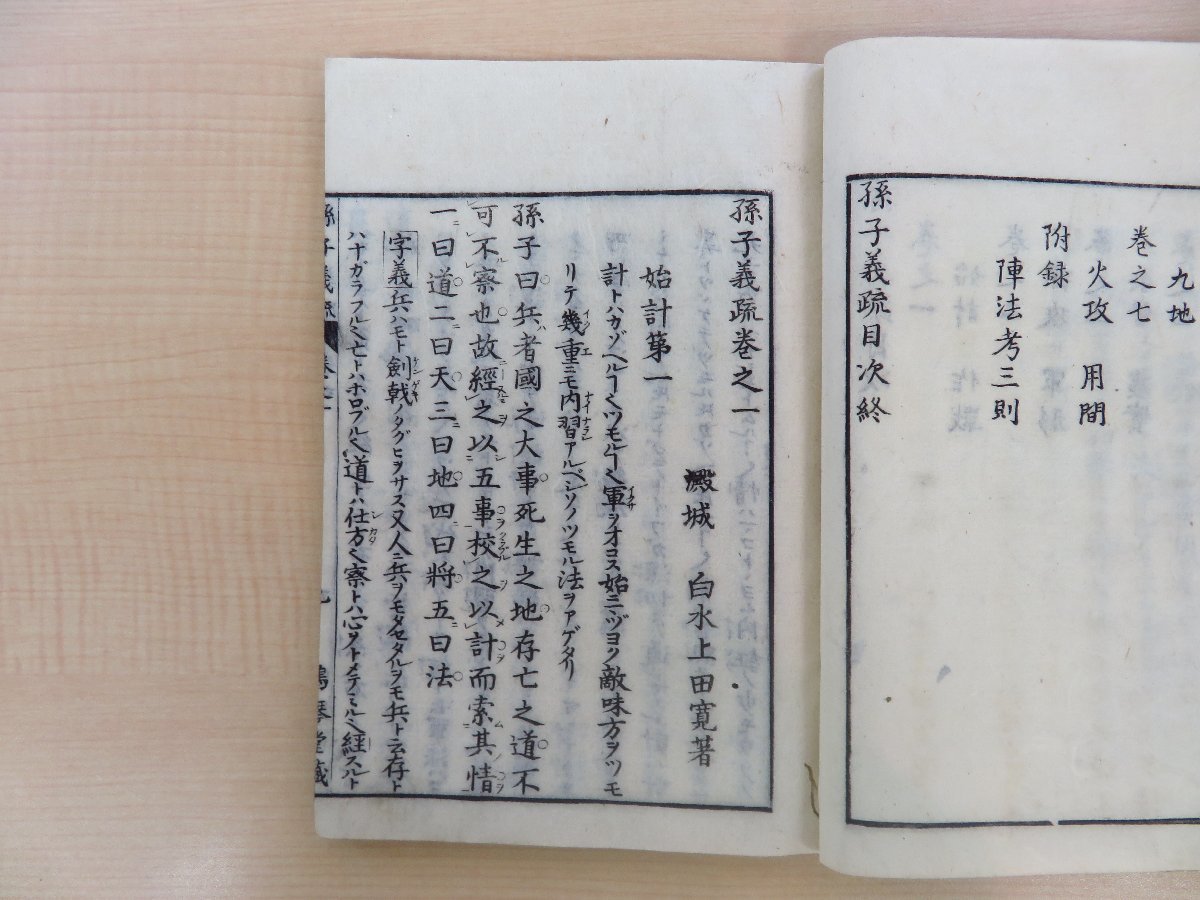 九地
巻之七
火攻 用間
附録
陣法考三則
孫子義疏目次終
孫子義疏巻之一
澱城 白水上田寛著
始計第一
計トハカゾヘハカルーヽツモルーヽ軍ヲオコス始ニヅヨク敵味方ヲツモ
リテ幾重ニモ内習アルベシソノツモル法ヲアゲタリ
孫子曰兵者國之大事死生之地存亡之道不
可不察也故經之以五事校之以計而索其情
一曰道二曰天三曰地四曰將五曰法
字義兵ハモト劍戟ノタグヒヲサス又人ニ兵ヲモタセタルヲモ兵ト云存ト
ハナガラフル亡トハホロブル道トハ仕方察トハ心ヲトメテミル經スルト
孫子義疏 巻之一